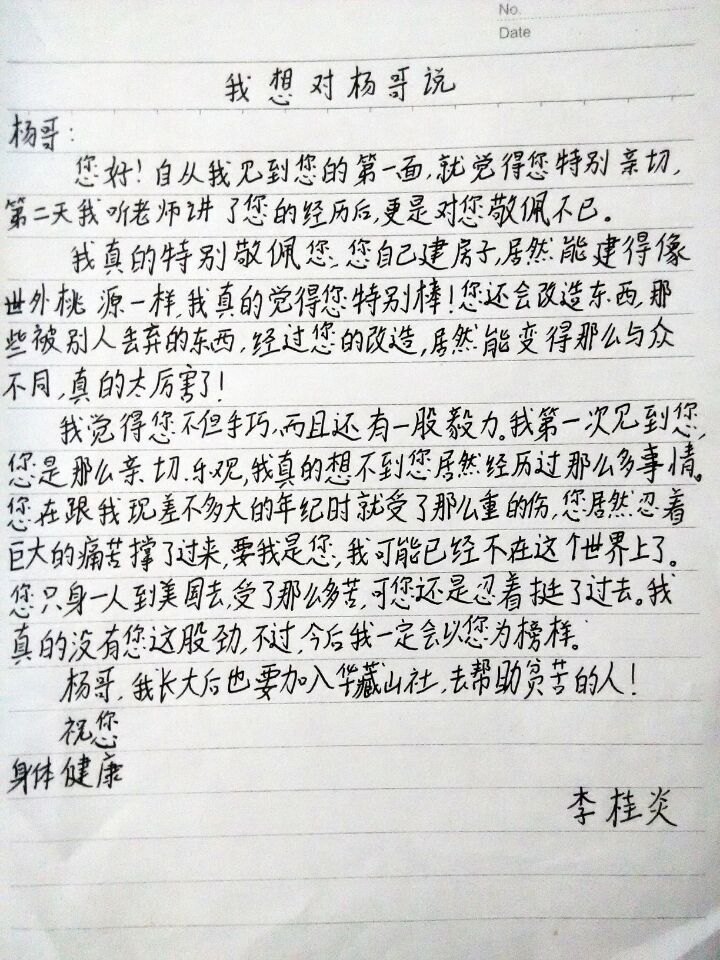 No.
Date
我想对杨哥说
杨哥：
您好！自从我见到您的第一面，就觉得您特别亲切，
第二天我听老师讲了您的经历后，更是对您敬佩不已。
我真的特别敬佩您，您自己建房子，居然能建得像
世外桃源一样，我真的觉得您特别棒！您还会改造东西，那
些被别人丢弃的东西，经过您的改造，居然能变得那么与众
不同，真的太厉害了！
我觉得您不但手巧，而且还有一股毅力。我第一次见到您，
您是那么亲切、乐观，我真的想不到您居然经历过那么多事情。
您在跟我现差不多大的年纪时就受了那么重的伤，您居然忍着
巨大的痛苦撑了过来，要我是您，我可能已经不在这个世界上了。
您只身一人到美国去，受了那么多苦，可您还是忍着挺了过去。我
真的没有您这股劲，不过，今后我一定会以您为榜样。
杨哥，我长大后也要加入华藏山社，去帮助贫苦的人！
祝您
身体健康
李桂炎